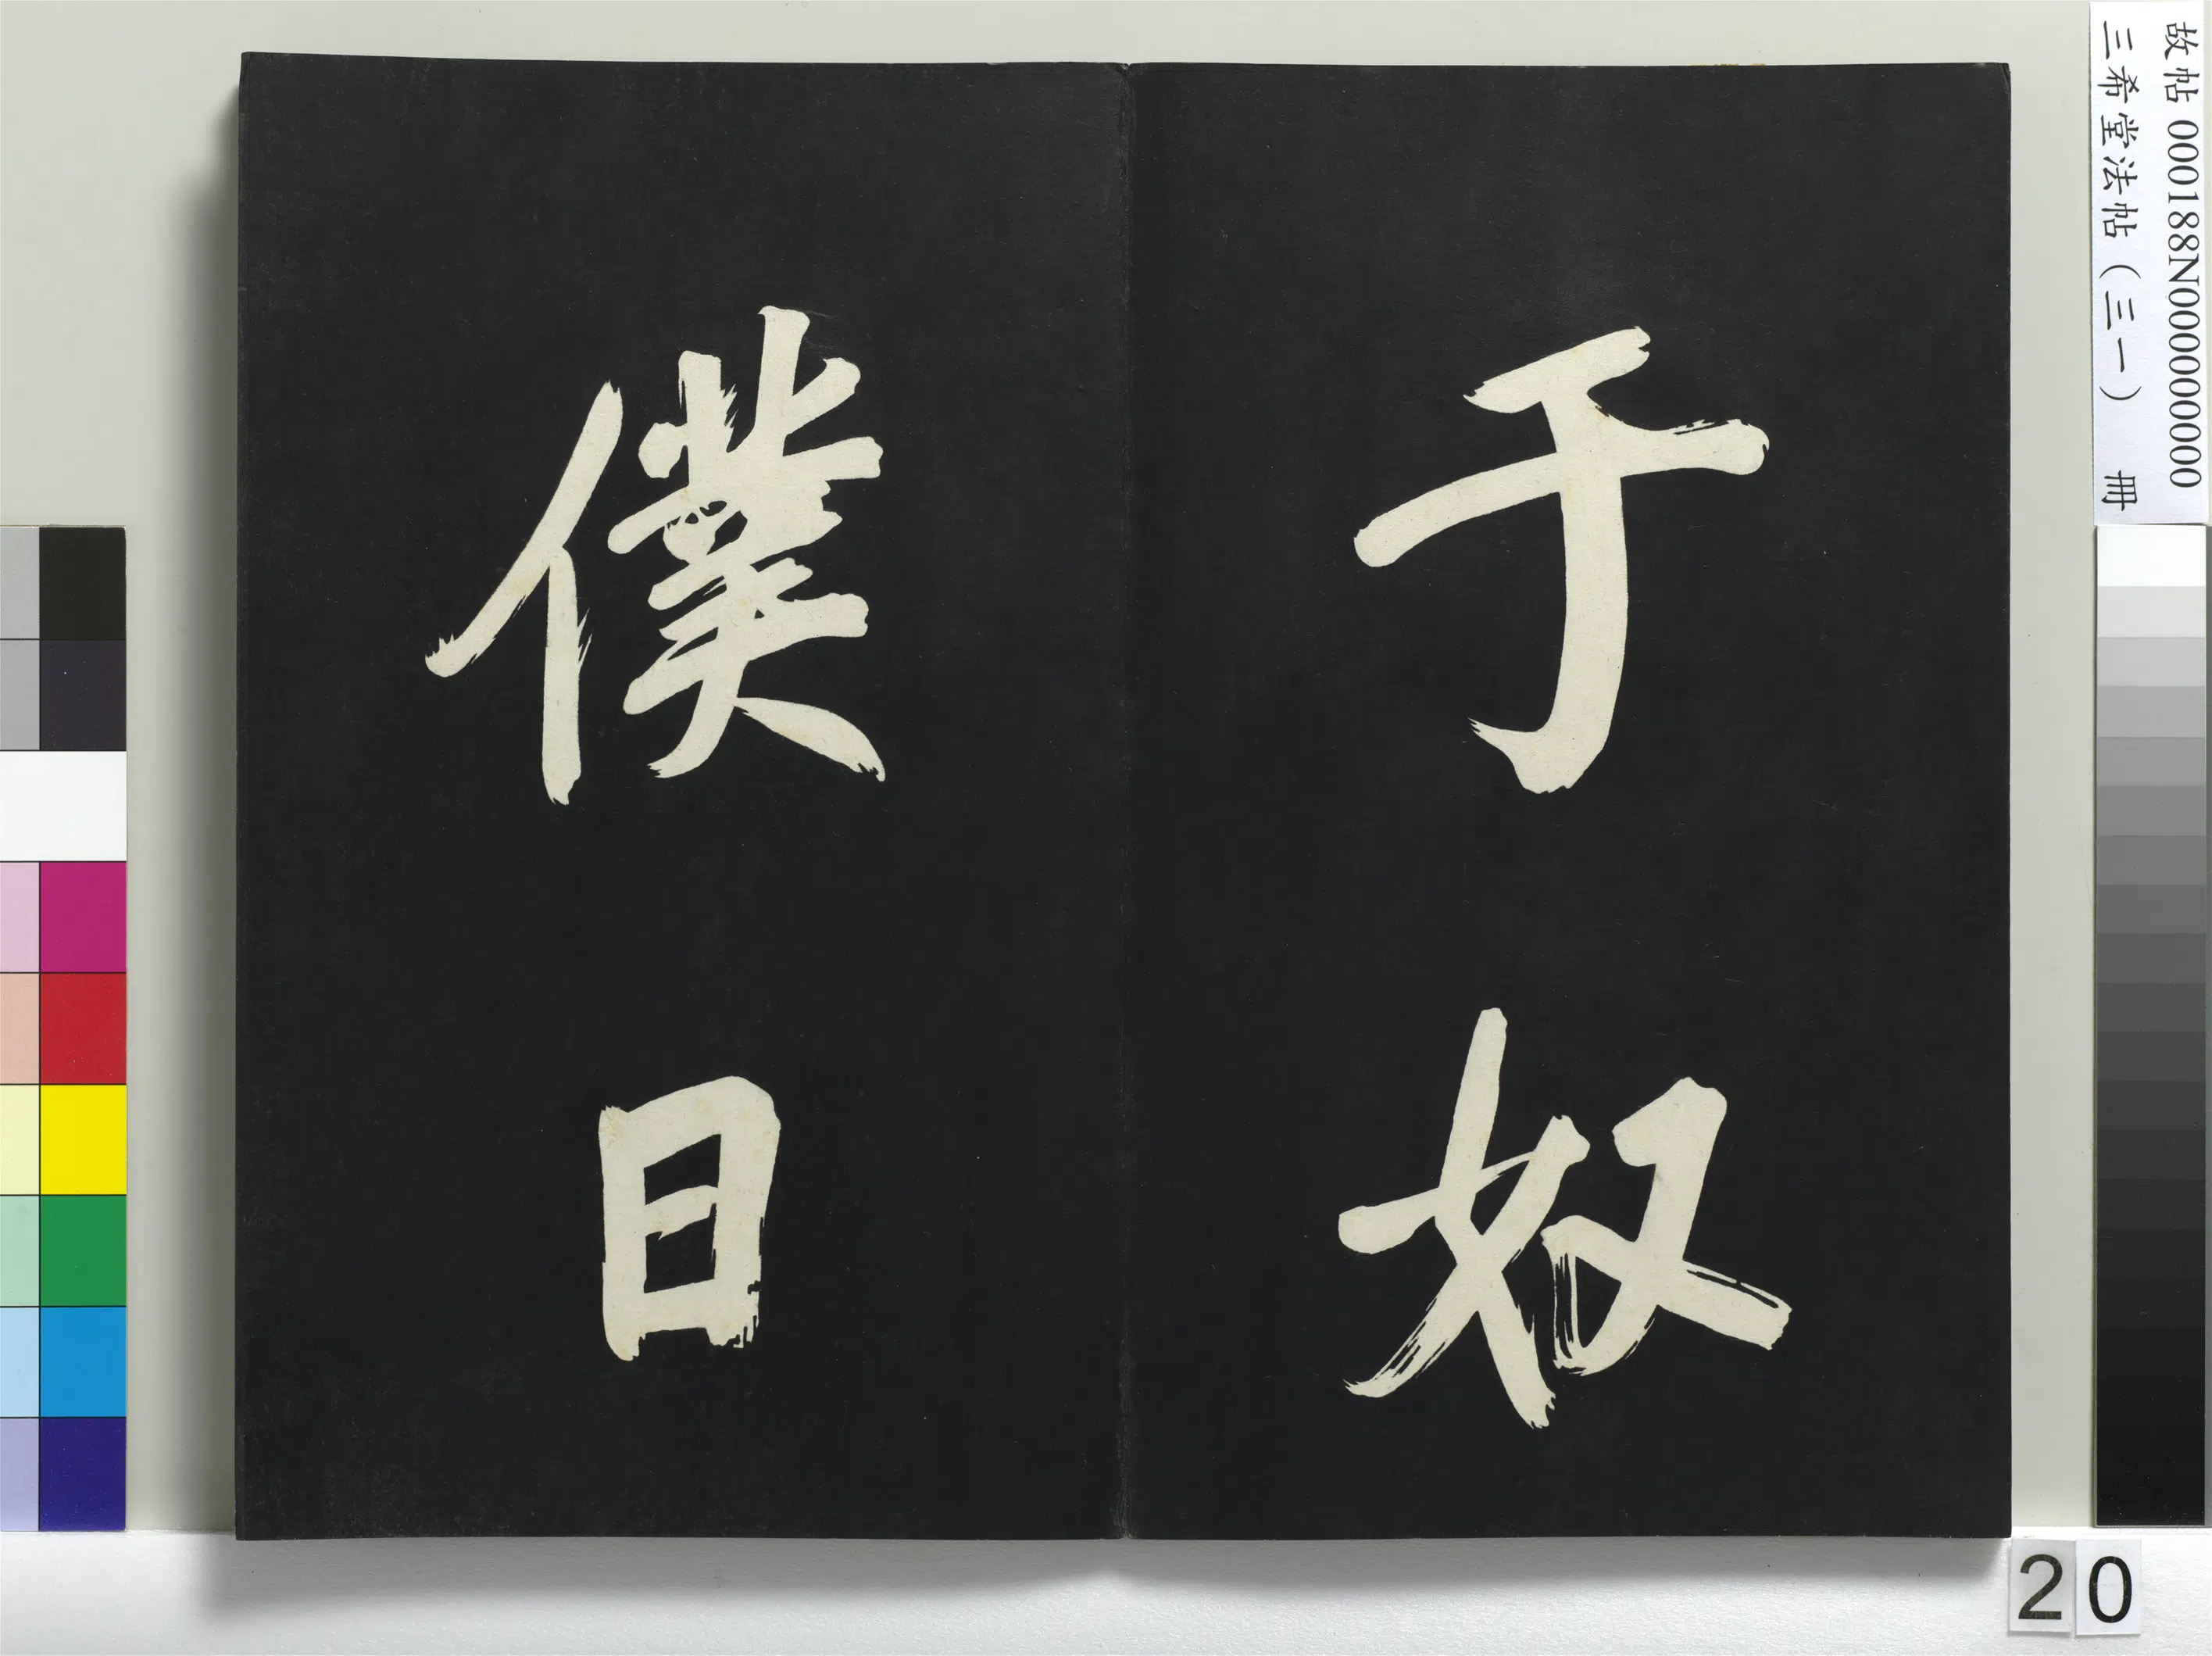 于奴
僕日
故帖 000188N000000000
三希堂法帖（三一） 冊
20